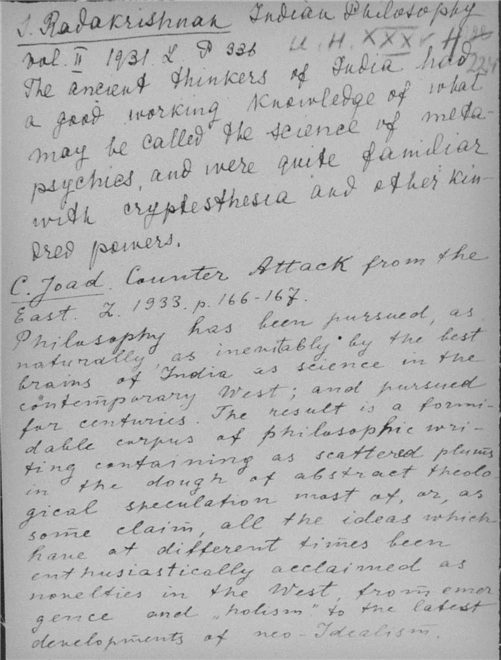 S. Radakrishnan Indian Philosophy
vol. II 1931. L P 336
И. Н. XXX
The ancient thinkers of India had
a good working knowledge of what
may be called the science of meta-
psychics, and were quite familiar
with cryptesthesia and other kin-
dred powers.
C. Joad. Counter Attack from the
East. L. 1933. p. 166-167.
Philosophy has been pursued, as
naturally as inevitably by the best
brains of India as science in the
contemporary West; and pursued
for centuries. The result is a formi-
dable corpus of philosophic wri-
ting containing as scattered plums
in the dough of abstract theolo-
gical speculation most of, or, as
some claim, all the ideas which
have at different times been
enthusiastically acclaimed as
novelties in the West, from emer
gence and „holism" to the latest
developments of neo-Idealism.